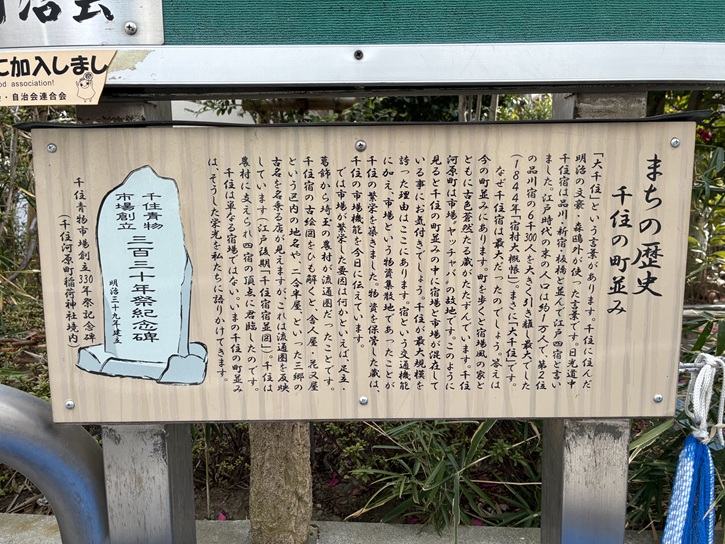 に加入しまし
od association!
・自治会連合会
まちの歴史
千住の町並み
「大千住」という言葉があります。千住に住んだ
明治の文豪・森鴎外が使った言葉です。日光道中
千住宿は品川・新宿・板橋と並んで江戸四宿と言い
ました。江戸時代の末の人口は約1万人で、第2位
の品川宿の6千300人を大きく引き離し最大でした
(1844年「宿村大概帳」)。まさに「大千住」です。
なぜ千住宿は最大だったのでしょう。答えは
今の町並みにあります。町を歩くと宿場風の家と
ともに古色蒼然たる蔵がたたずんでいます。千住
河原町は市場・ヤッチャバの故地です。このように
見ると千住の町並みの中に宿場と市場が混在して
いる事にお気付きでしょう。千住が最大規模を
誇った理由はここにあります。宿という交通機能
に加え、市場という物資集散地であったことが
千住の繁栄を築きました。物資を保管した蔵は、
千住の市場機能を今日に伝えています。
では市場が繁栄した要因は何かといえば、足立・
葛飾から埼玉の農村が流通圏だったことです。
千住宿の古絵図をひも解くと、舎人屋・花又屋
という区内の地名や、二合半屋、といった三郷の
古名を名乗る店が見えますが、これは流通圏を反映
しています(江戸後期「千住宿宿並図」)。千住は
農村に支えられ四宿の頂点に君臨したのです。
千住は単なる宿場ではない。いまの千住の町並み
は、そうした栄光を私たちに語りかけてきます。
千住青物
市場創立
三百三十年祭紀念碑
明治三十九年建立
千住青物市場創立330年祭記念碑
(千住河原町稲荷神社境内)